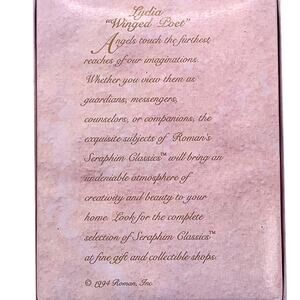 Lydia
"Winged Poet"
Angels touch the furthest
reaches of our imaginations.
Whether you view them as
guardians, messengers,
counselors, or companions, the
exquisite subjects of Roman's
Seraphim Classics™ will bring an
undeniable atmosphere of
creativity and beauty to your
home. Look for the complete
selection of Seraphim Classics™
at fine gift and collectible shops.
© 1994 Roman, Inc.